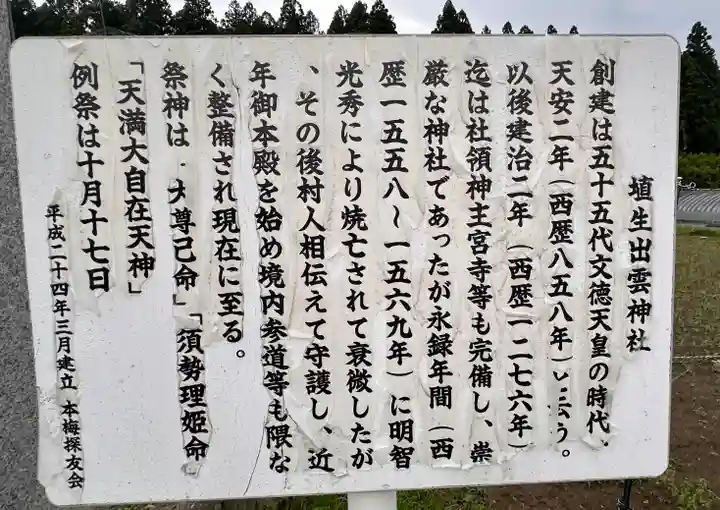 埴生出雲神社
創建は五十五代文徳天皇の時代、
天安二年（西歴八五八年）と云う。
以後建治二年（西歴一二七六年）
迄は社領神主宮寺等も完備し、崇
厳な神社であったが永録年間（西
歴一五五八～一五六九年）に明智
光秀により焼亡されて衰微したが
、その後村人相伝えて守護し、近
年御本殿を始め境内参道等も隈な
く整備され現在に至る。
祭神は 大尊己命」「須勢理姫命
「天満大自在天神」
例祭は十月十七日
平成二十四年三月建立 本梅探友会